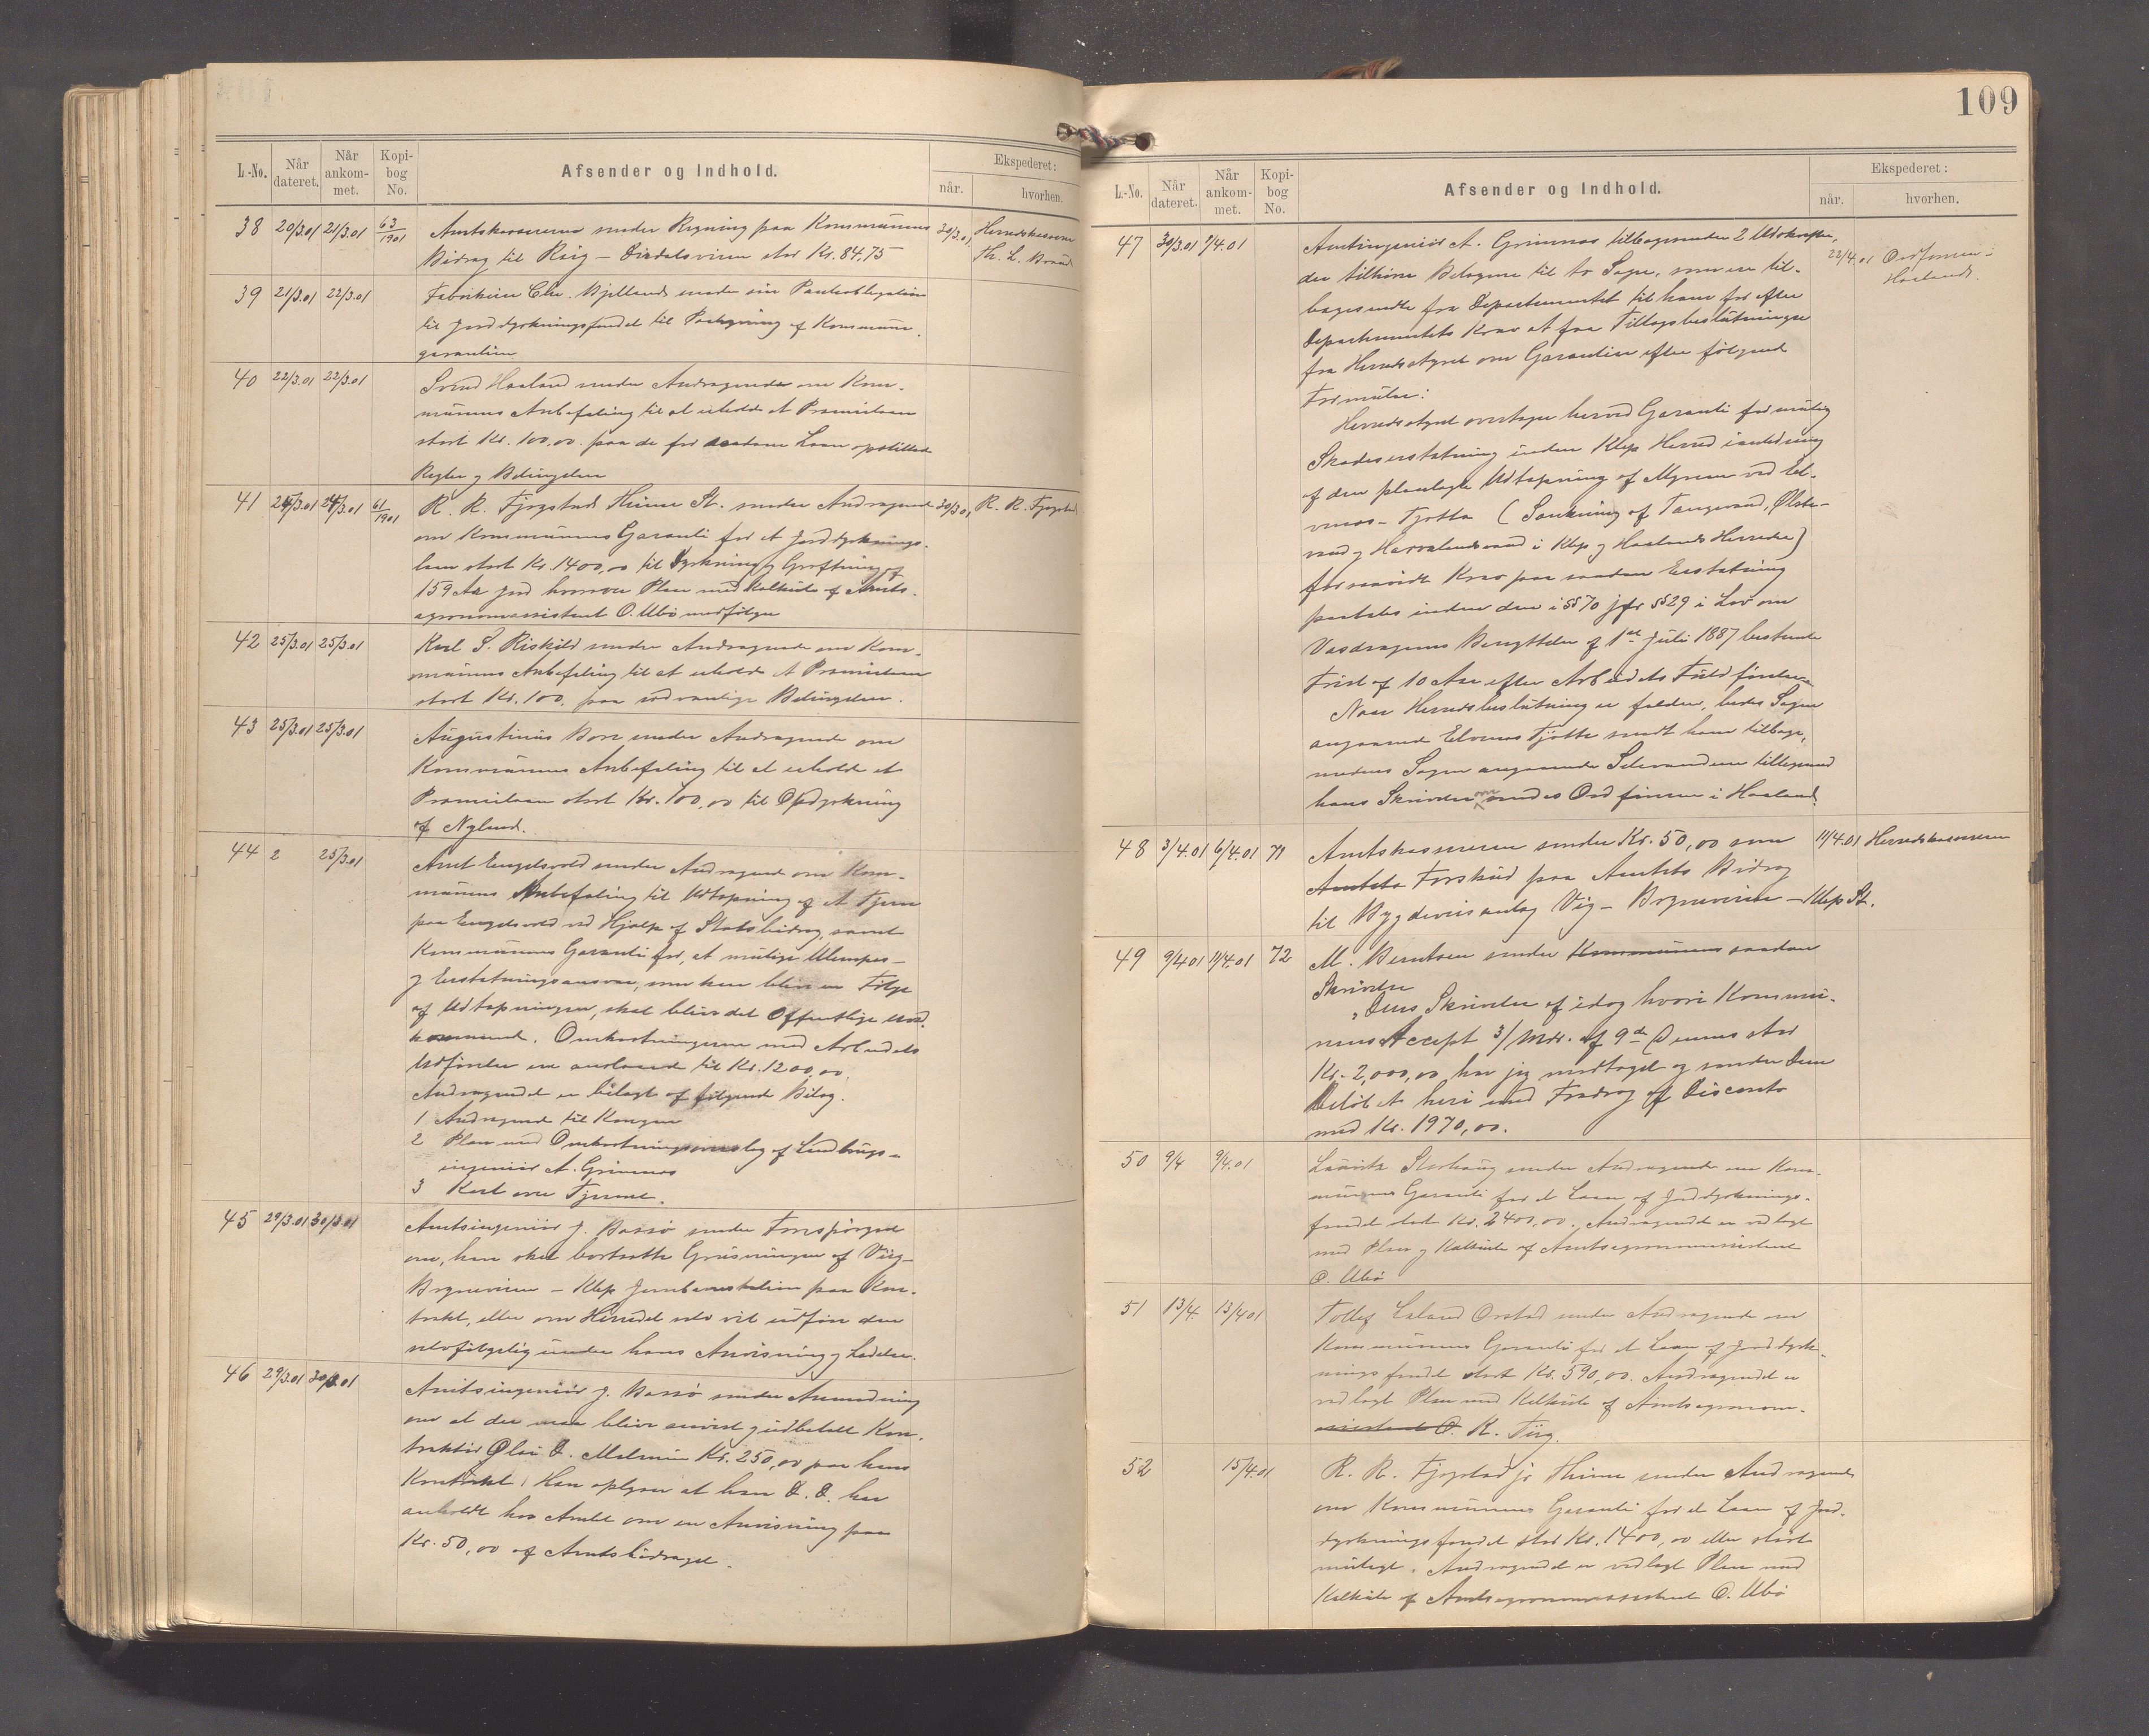 L.-No. Når dateret. Når ankom-met. Kopi-bog No. Afsender og Indhold. Ekspederet: når. hvorhen.
38 20/3.01 21/3.01 63/1901 Amtskassereren sender Regning paa Kommunens 30/3.01 Herredskasserer
Bidrag til Riig - Dirdalsveien stor Kr. 84.75 Th. L. Braud
39 21/3.01 22/3.01 Fabrikeier Chr. Bjelland sender sin Panteobligation
til Jorddyrkningsfondet til Paategning af Kommune-
garantien
40 22/3.01 22/3.01 Svend Haaland sender Andragende om Kom-
munens Anbefaling til at erholde et Præmielaan
stort Kr. 100,00 paa de for saadanne Laan opstillede
Regler og Betingelser
41 24/3.01 24/3.01 61/1901 R. R. Fjogstad Thime St. sender Andragende 30/3.01 R. R. Fjogstad
om Kommunens Garanti for et Jorddyrknings-
laan stort Kr. 1400,00 til Dyrkning og Grøftning af
159 Ar jord hvorover Plan med Kalkule af Amts-
agronomassistent O. Ubø medfølger
42 25/3.01 25/3.01 Karl S. Riskild sender Andragende om Kom-
munens Anbefaling til at erholde et Præmielaan
stort Kr. 100, paa sædvanlige Betingelser.
43 25/3.01 25/3.01 Augustinus Bore sender Andragende om
Kommunens Anbefaling til at erholde et
Præmielaan stort Kr. 100,00 til Opdyrkning
af Nyland.
44 2 25/3.01 Arnt Engelsvold sender Andragende om Kom-
munens Anbefaling til Udtapning af et Tjern
paa Engelsvold ved Hjælp af Statsbidrag, samt
Kommunens Garanti for, at mulige Ulempes-
og Erstatningsansvar, som kan blive en Følge
af Udtapningen, skal blive det Offentlige uved-
kommende. Omkostningerne med Arbeidets
Udførelse er anslaaede til Kr. 1200,00.
Andragendet er bilagt af følgende Bilag.
1 Andragende til Kongen
2 Plan med Omkostningsoverslag af Landbrugs-
ingeniør A. Grimnes
3 Kart over Tjernet.
45 29/3.01 30/3.01 Amtsingeniør J. Bassø sender Forespørgsel
om, han skal bortsætte Grusningen af Vig-
Brynevien - Klep Jernbanestation paa Kon-
trakt, eller om Herredet selv vil udføre den
selvfølgelig under hans Anvisning og Ledelse.
46 29/3.01 30/3.01 Amtsingeniør J. Bassø sender Anmodning
om at der maa blive anvist og udbetalt Kon-
traktør Olai O. Malmin Kr. 250,00 paa hans
Kontrakt. Han oplyser at han D. D. har
anholdt hos Amtet om en Anvisning paa
Kr. 50,00 af Amtsbidraget.
109
L.-No. Når dateret. Når ankom-met. Kopi-bog No. Afsender og Indhold. Ekspederet: når. hvorhen.
47 30/3.01 1/4.01 Amtsingeniør A. Grimnes tilbagesender 2 Udskrifter, 22/4.01 Ordføreren i
der tilhører Bilagene til to Sager, som er til- Haaland.
bagesendte fra Departementet til ham for efter
Departementets Krav at faa Tillægsbeslutninger
fra Herredsstyret om Garantier efter følgende
Formular:
Herredsstyret overtager herved Garanti for mulig
Skadeserstatning inden Klep Herred i anledning
af den planlagte Udtapning af Myrene ved El-
venes-Tjøtta (Sænkning af Tangevand, Ølste-
vand og Harvelandsvand i Klep og Haalands Herreder)
forsaavidt Krav paa saadan Erstatning
paatales inden den i §§ 70 jfr §§ 29 i Lov om
Vasdragenes Benyttelse af 1ste Juli 1887 bestemte
Frist af 10 Aar efter Arbeidets Fuldførelse
Naar Herredsbeslutning er falden, bedes Sagen
angaaende Elvenes Tjøtta sendt ham tilbage,
medens Sagen angaaende Selevandene tilligemed
hans Skrivelse om sendes Ordføreren i Haaland.
48 3/4.01 6/4.01 71 Amtskassereren sender Kr. 50,00 som 11/4.01 Herredskassereren
Amtets Forskud paa Amtets Bidrag
til Bygdeveisanlæg Vig - Brynevien - Klep St.
49 9/4.01 11/4.01 72 M. Berntsen sender Kommunens saadan
Skrivelse
"Deres Skrivelse af idag hvori Kommu-
nens Accept 3/Mdr. af 9de Dennes stor
Kr. 2,000,00, har jeg modtaget og sender Dem
Beløbet heri med Fradrag af Disconto
med Kr. 1970,00.
50 9/4 9/4.01 Lauritz Storhaug sender Andragende om Kom-
munens Garanti for et Laan af Jorddyrknings-
fondet stort Kr. 2400,00. Andragendet er vedlagt
med Plan og Kalkule af Amtsagronomassistent
O. Ubø
51 13/4. 13/4.01 Tollef Laland Orstad sender Andragende om
Kommunens Garanti for et Laan af Jorddyrk-
ningsfondet stort Kr. 590,00. Andragendet er
vedlagt Plan med Kalkule af Amtsagronom-
assistent O. K. Tug.
52 15/4.01 R. R. Fjogstad jr Thime sender Andragende
om Kommunens Garanti for et Laan af Jord-
dyrkningsfondet stor Kr. 1400,00 eller størst
muligt. Andragendet er vedlagt Plan med
Kalkule af Amtsagronomassistent O. Ubø